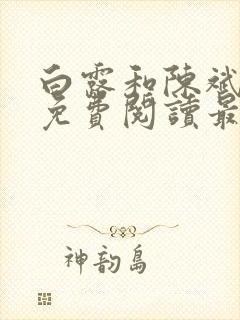 白露和陳斌
免費閱讀最
神韵島